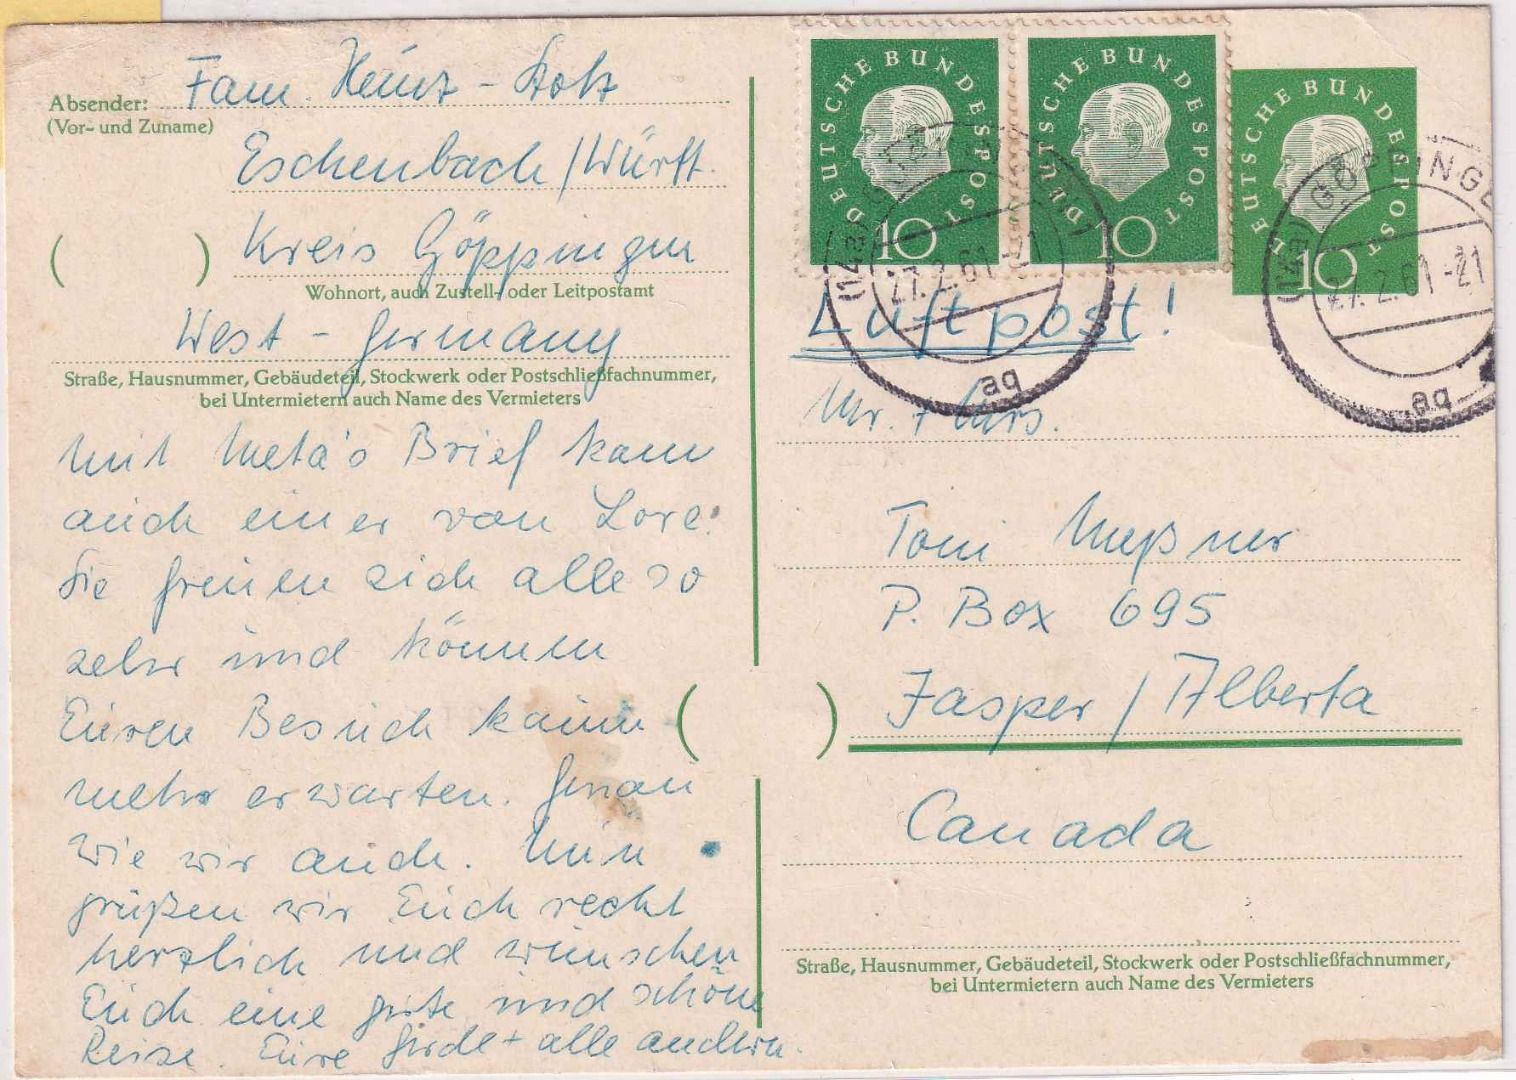 Absender: Fam. Heinz-Stolz
(Vor- und Zuname)
Eschenbach/Württ.
Kreis Göppingen
Wohnort, auch Zustell- oder Leitpostamt
West-Germany
Straße, Hausnummer, Gebäudeteil, Stockwerk oder Postschließfachnummer,
bei Untermietern auch Name des Vermieters
mit Meta's Brief kam
auch einer von Lore.
Sie freuen sich alle so
sehr und können
Euren Besuch kaum
mehr erwarten. Genau
wie wir auch. Nun
grüßen wir Euch recht
herzlich und wünschen
Euch eine gute und schöne
Reise. Eure Girde + alle andern.
DEUTSCHE BUNDESPOST
10
DEUTSCHE BUNDESPOST
10
DEUTSCHE BUNDESPOST
10
(14a) GÖPPINGEN
27.2.61-21
aq
(14a) GÖPPINGE
27.2.61-21
aq
Luftpost!
Mr. + Mrs.
Toni Meßner
P. Box 695
Jasper / Alberta
Canada
Straße, Hausnummer, Gebäudeteil, Stockwerk oder Postschließfachnummer,
bei Untermietern auch Name des Vermieters